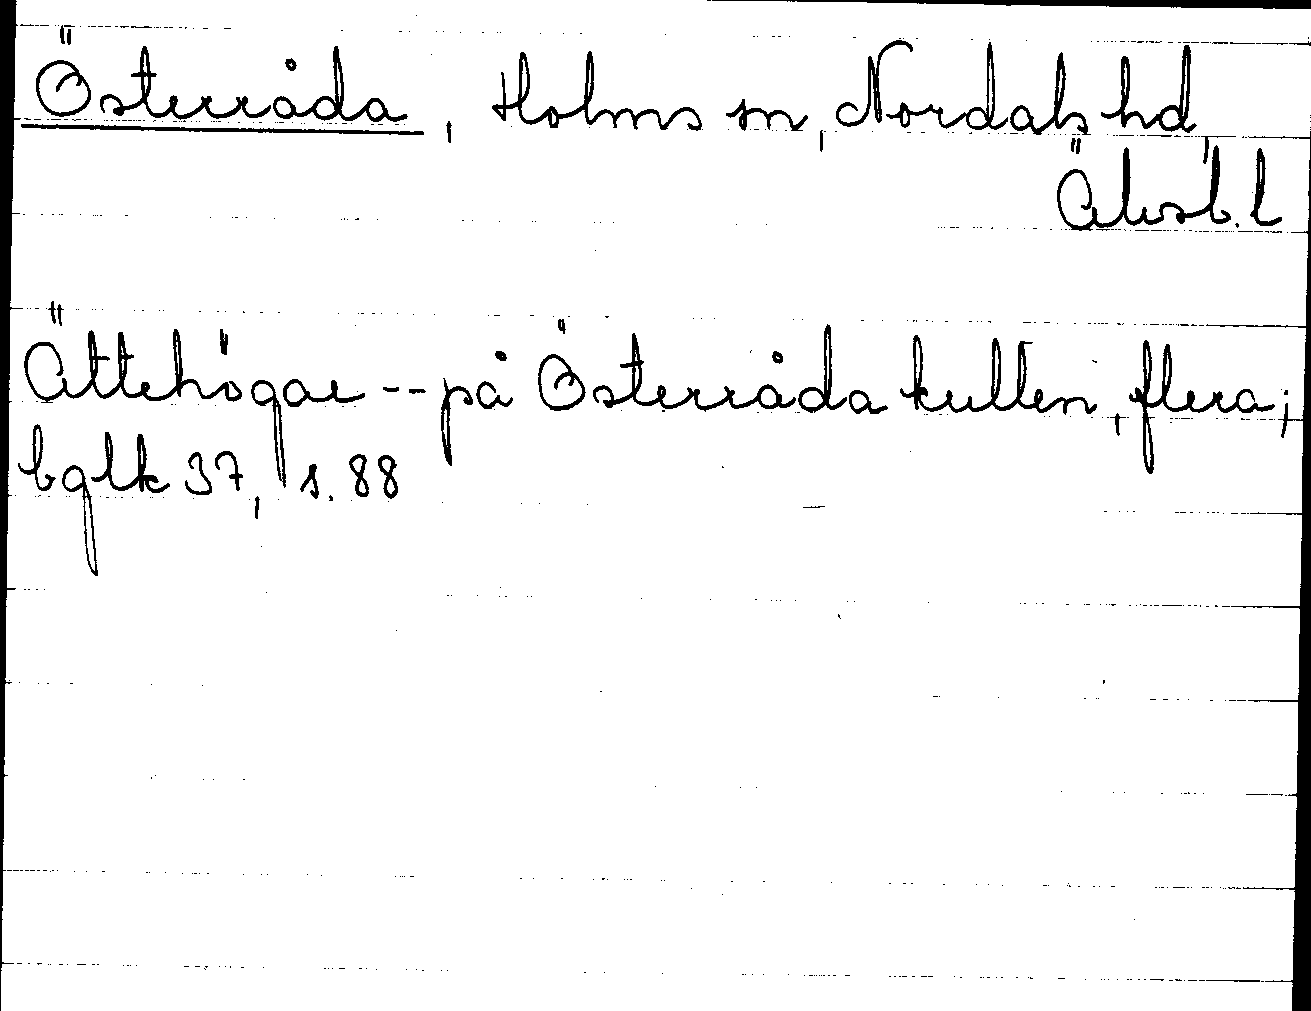 Österråda, Holms sn, Nordals hd,
Älvsb. l
Ättehögar -- på Österråda kullen, flera;
bglk 37, s. 88